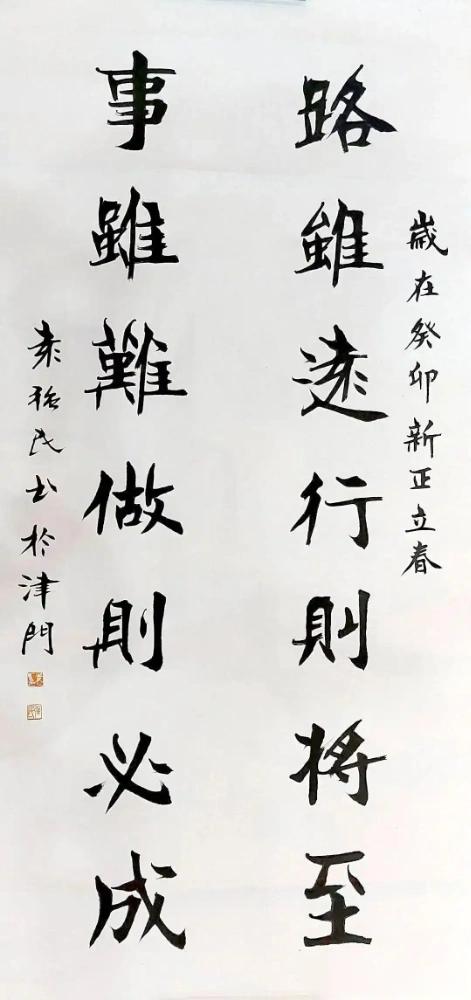 歲在癸卯新正立春
路雖遠行則將至
事雖難做則必成
袁强民书於津門